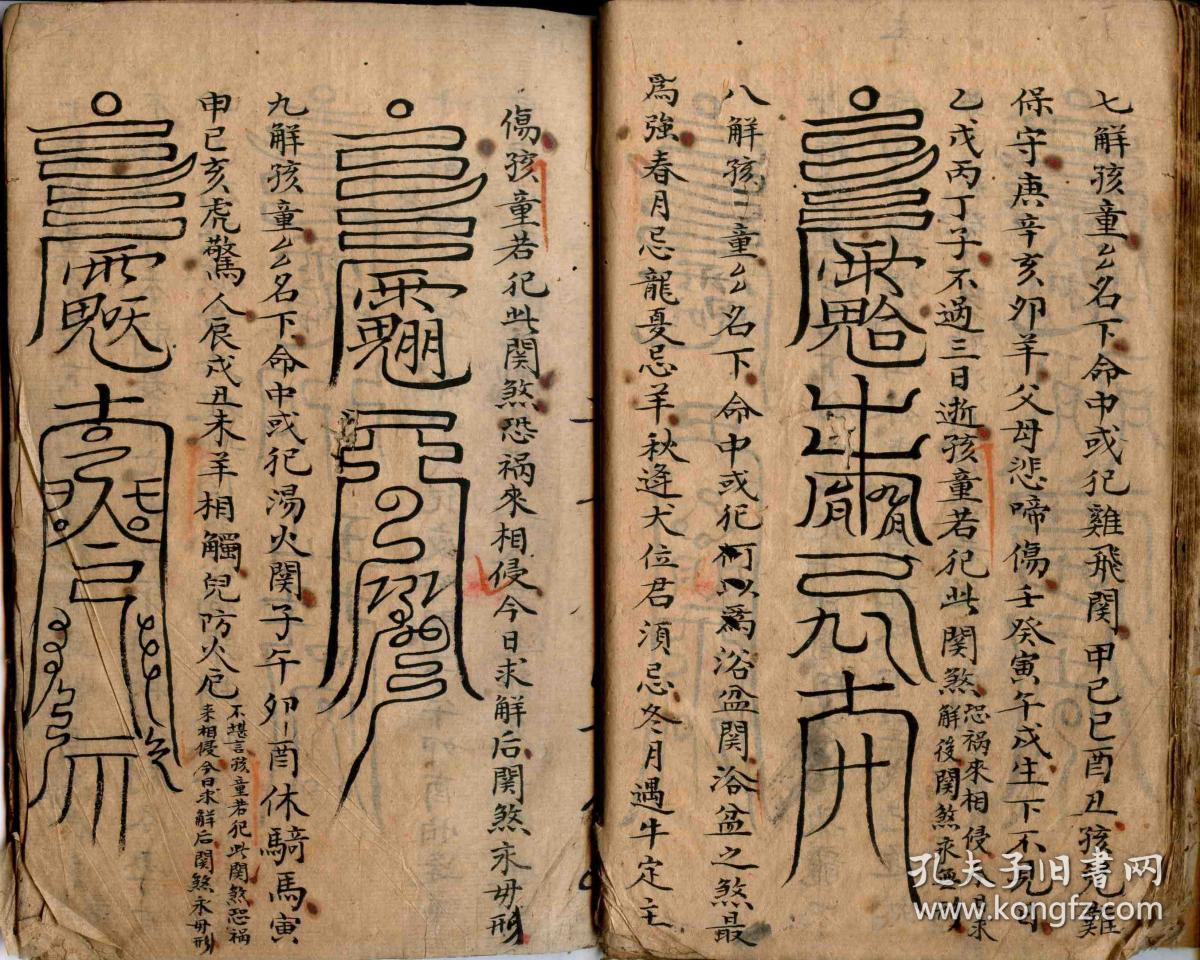 七解孩童厶名下命中或犯雞飛関甲己巳酉丑孩兒難
保守庚辛亥卯羊父母悲啼傷壬癸寅午戌生下不見
乙戊丙丁子不過三日逝孩童若犯此関煞恐祸來相侵
解後関煞永
八解孩童厶名下命中或犯何以為浴盆関浴盆之煞最
為強春月忌龍夏忌羊秋逢犬位君須忌冬月遇牛定主
傷孩童若犯此関煞恐祸來相侵今日求解后関煞永毋形
九解孩童厶名下命中或犯湯火関子午卯酉休騎馬寅
申巳亥虎驚人辰戌丑未羊相觸兒防火厄不堪言孩童若犯此関煞恐祸
来相侵今日求解后関煞永毋形
孔夫子旧书网
www.kongfz.com